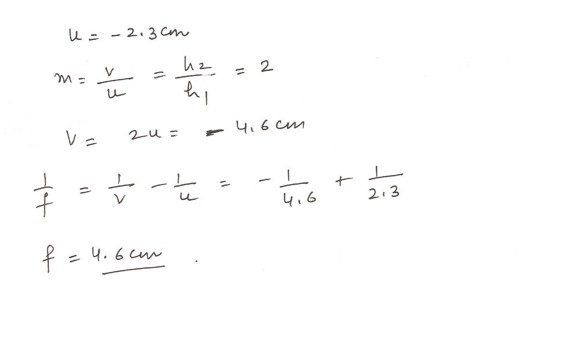 u = - 2.3 cm
m = v/u = h2/h1 = 2
V = 2u = - 4.6 cm
1/f = 1/v - 1/u = - 1/4.6 + 1/2.3
f = 4.6 cm .